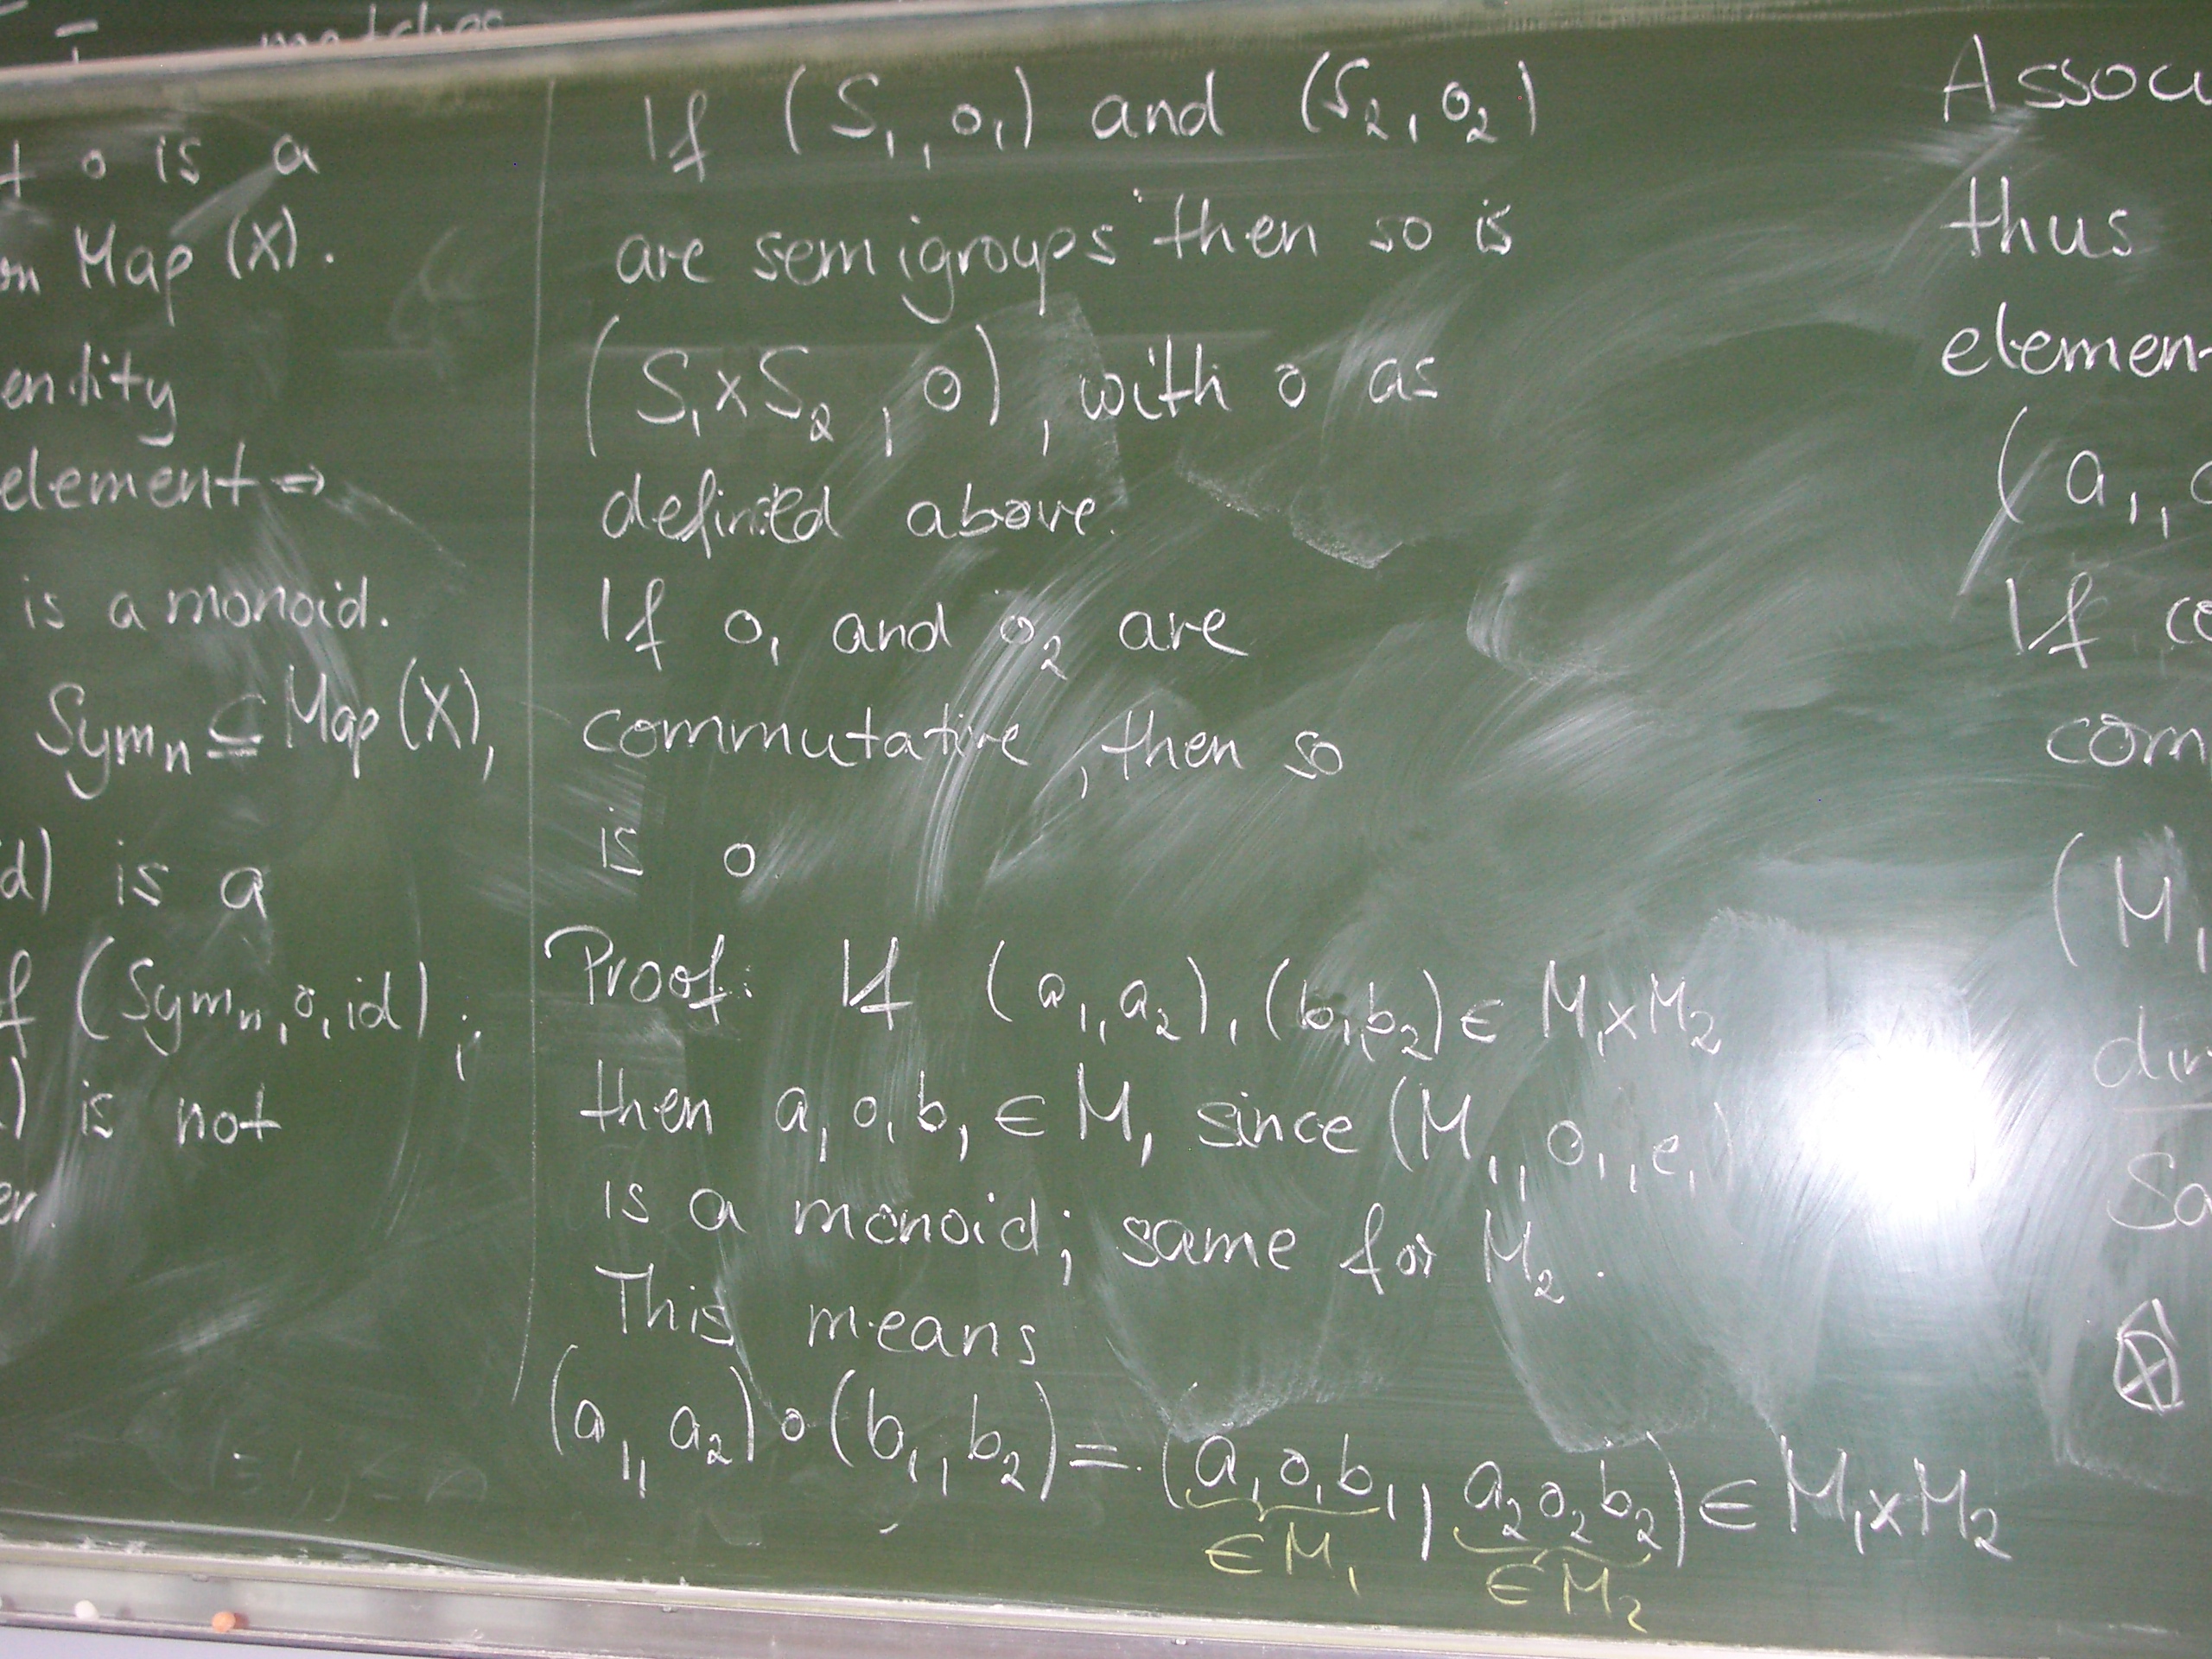 matches
o is a
on Map (X).
entity
element ⇒
is a monoid.
Symₙ ⊆ Map (X),
d) is a
f (Symₙ, o, id) ;
) is not
er.
If (S₁, o₁) and (S₂, o₂)
are semigroups then so is
(S₁×S₂, o), with o as
defined above.
If o₁ and o₂ are
commutative, then so
is o
Proof: If (a₁, a₂), (b₁, b₂) ∈ M₁×M₂
then a₁ o₁ b₁ ∈ M₁ since (M₁, o₁, e₁)
is a monoid; same for M₂.
This means
(a₁, a₂) o (b₁, b₂) = (a₁ o₁ b₁, a₂ o₂ b₂) ∈ M₁×M₂
∈ M₁ ∈ M₂
Assoc
thus
elemen
(a₁,
If co
com
(M₁
dir
Sa